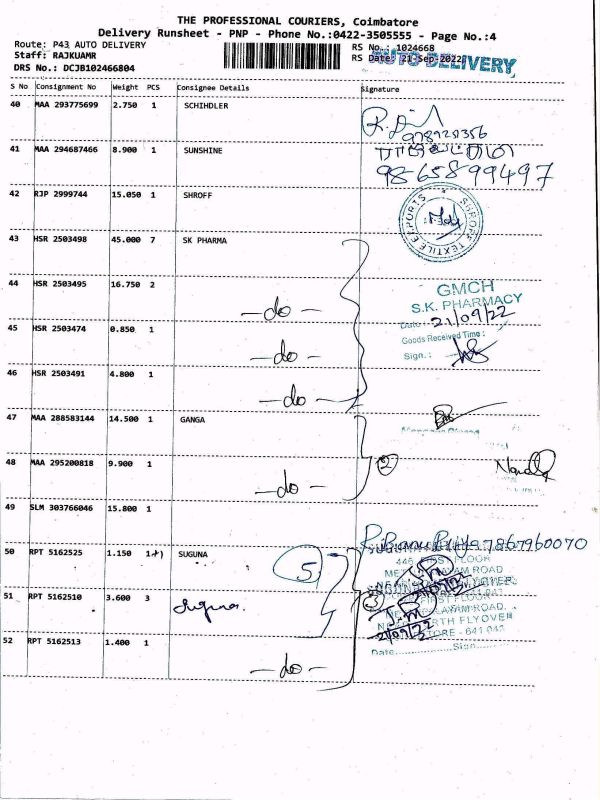 THE PROFESSIONAL COURIERS, Coimbatore
Delivery Runsheet - PNP - Phone No.:0422-3505555 - Page No.:4
Route: P43 AUTO DELIVERY
RS No.: 1024668
Staff: RAJKUAMR
RS Date: 21-Sep-2022
AUTO DELIVERY
DRS No.: DCJB102466804
S No Consignment No Weight PCS Consignee Details Signature
40 MAA 293775699 2.750 1 SCHIHDLER
41 MAA 294687466 8.900 1 SUNSHINE
9865899497
42 RJP 2999744 15.050 1 SHROFF
SHROFF TEXTILE EXPORTS
43 HSR 2503498 45.000 7 SK PHARMA
44 HSR 2503495 16.750 2
-do-
GMCH
S.K. PHARMACY
Date 21/09/22
45 HSR 2503474 0.850 1
-do-
Goods Received Time :
Sign. :
46 HSR 2503491 4.800 1
-do-
47 MAA 288583144 14.500 1 GANGA
48 MAA 295200818 9.900 1
-do-
2
49 SLM 303766046 15.800 1
7867960070
50 RPT 5162525 1.150 1 SUGUNA
5
446 FIRST FLOOR
51 RPT 5162510 3.600 3 suguna
3
FIRST FLOOR
NORTH FLYOVER
52 RPT 5162513 1.400 1
-do-
Date Sign